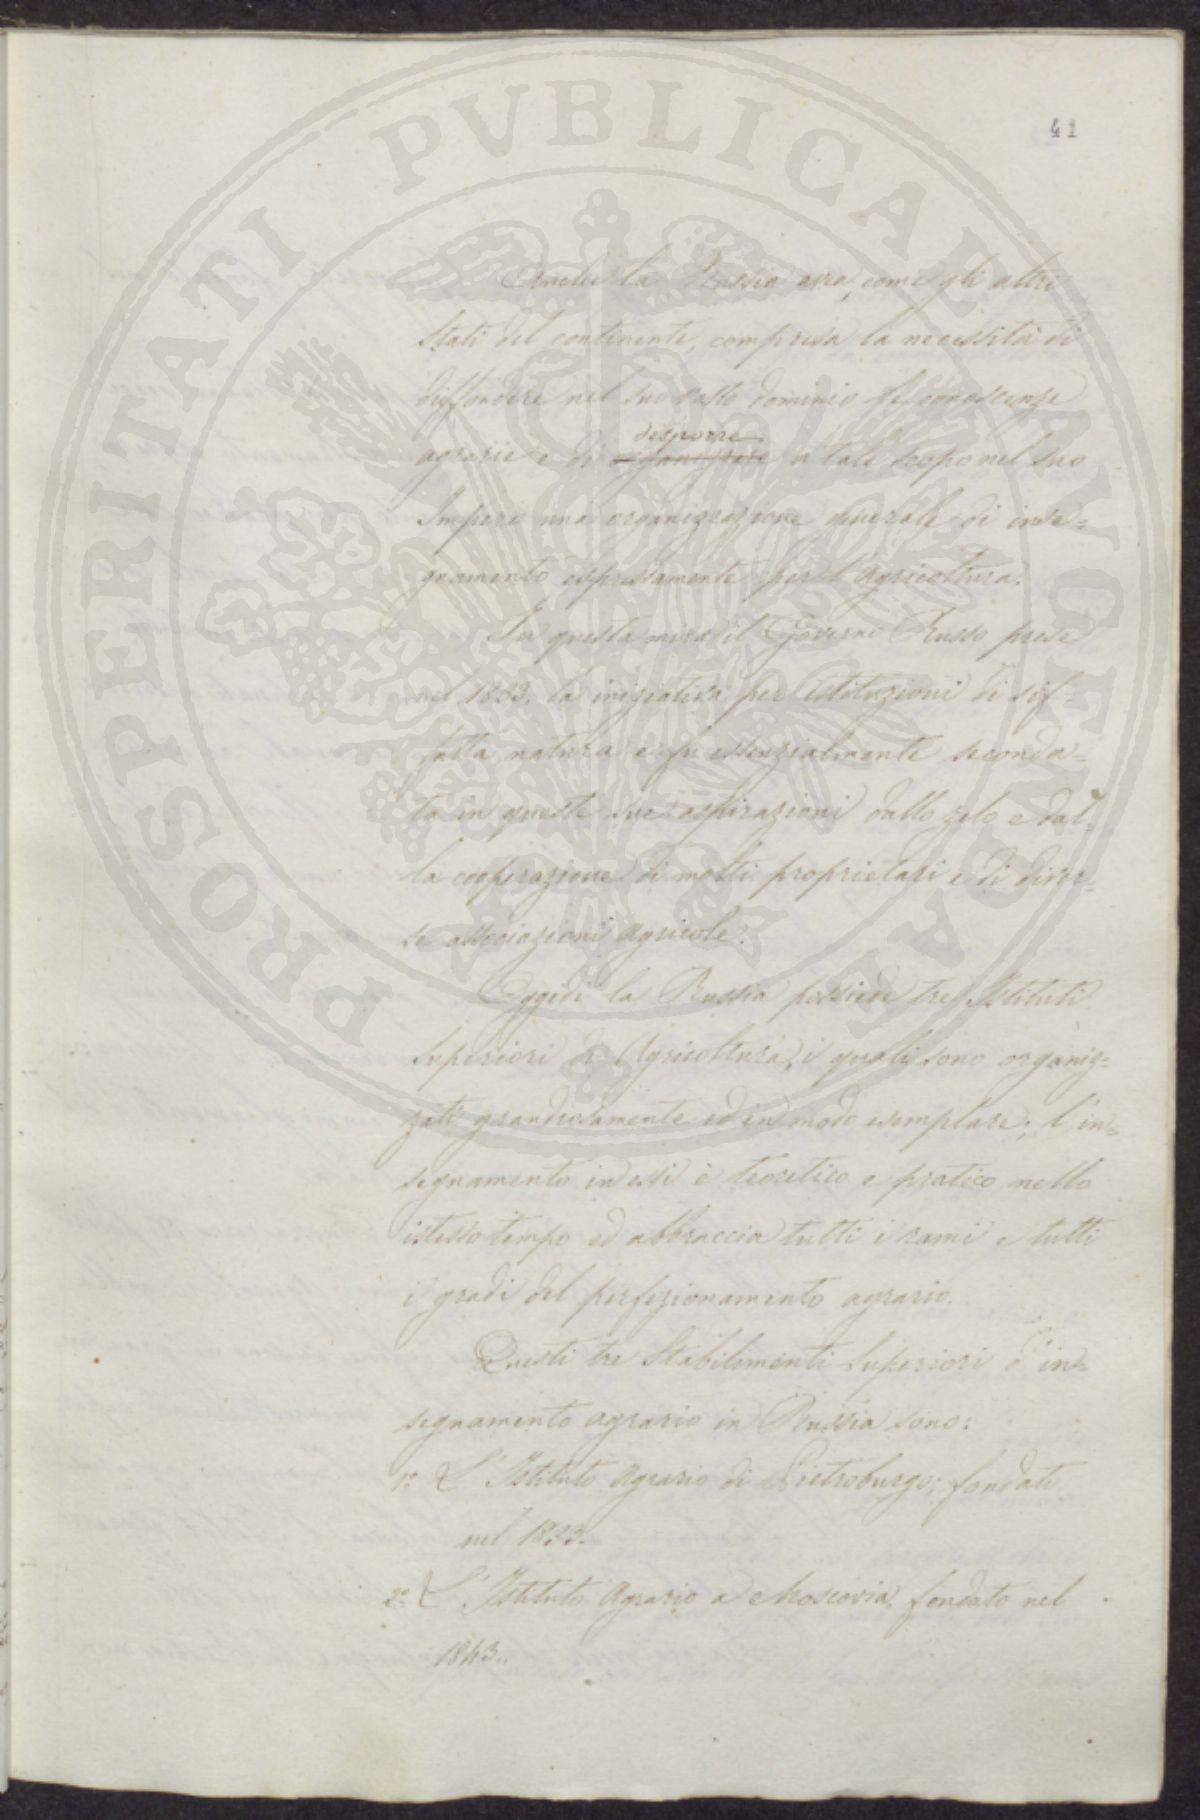 41
PROSPERITATI PVBLICAE AVGENDAE
Anche la Russia avea, come gli altri
Stati del continente, compresa la necessità di
diffondere nel suo vasto dominio le conoscenze
agrarie e di disporre organizzare a tale scopo nel suo
Impero una organizzazione generale di inse=
gnamento espressamente per l'agricoltura.
In questa mira il Governo Russo prese
nel 1833. la iniziativa per istituzioni di sif=
fatta natura e fu essenzialmente seconda=
ta in queste sue aspirazioni dallo zelo e dal=
la cooperazione di molti proprietari e di diver=
se associazioni agricole.
Oggidì la Russia possiede tre Istituti
Superiori di Agricoltura, i quali sono organiz=
zati grandiosamente ed in modo esemplare; l'in=
segnamento in essi è teoretico e pratico nello
istesso tempo ed abbraccia tutti i rami e tutti
i gradi del perfezionamento agrario.
Questi tre Stabilimenti Superiori d'in=
segnamento agrario in Russia sono:
1º L'Istituto Agrario di Pietroburgo; fondato
nel 1833.
2º L'Istituto Agrario a Moscovia, fondato nel
1843.